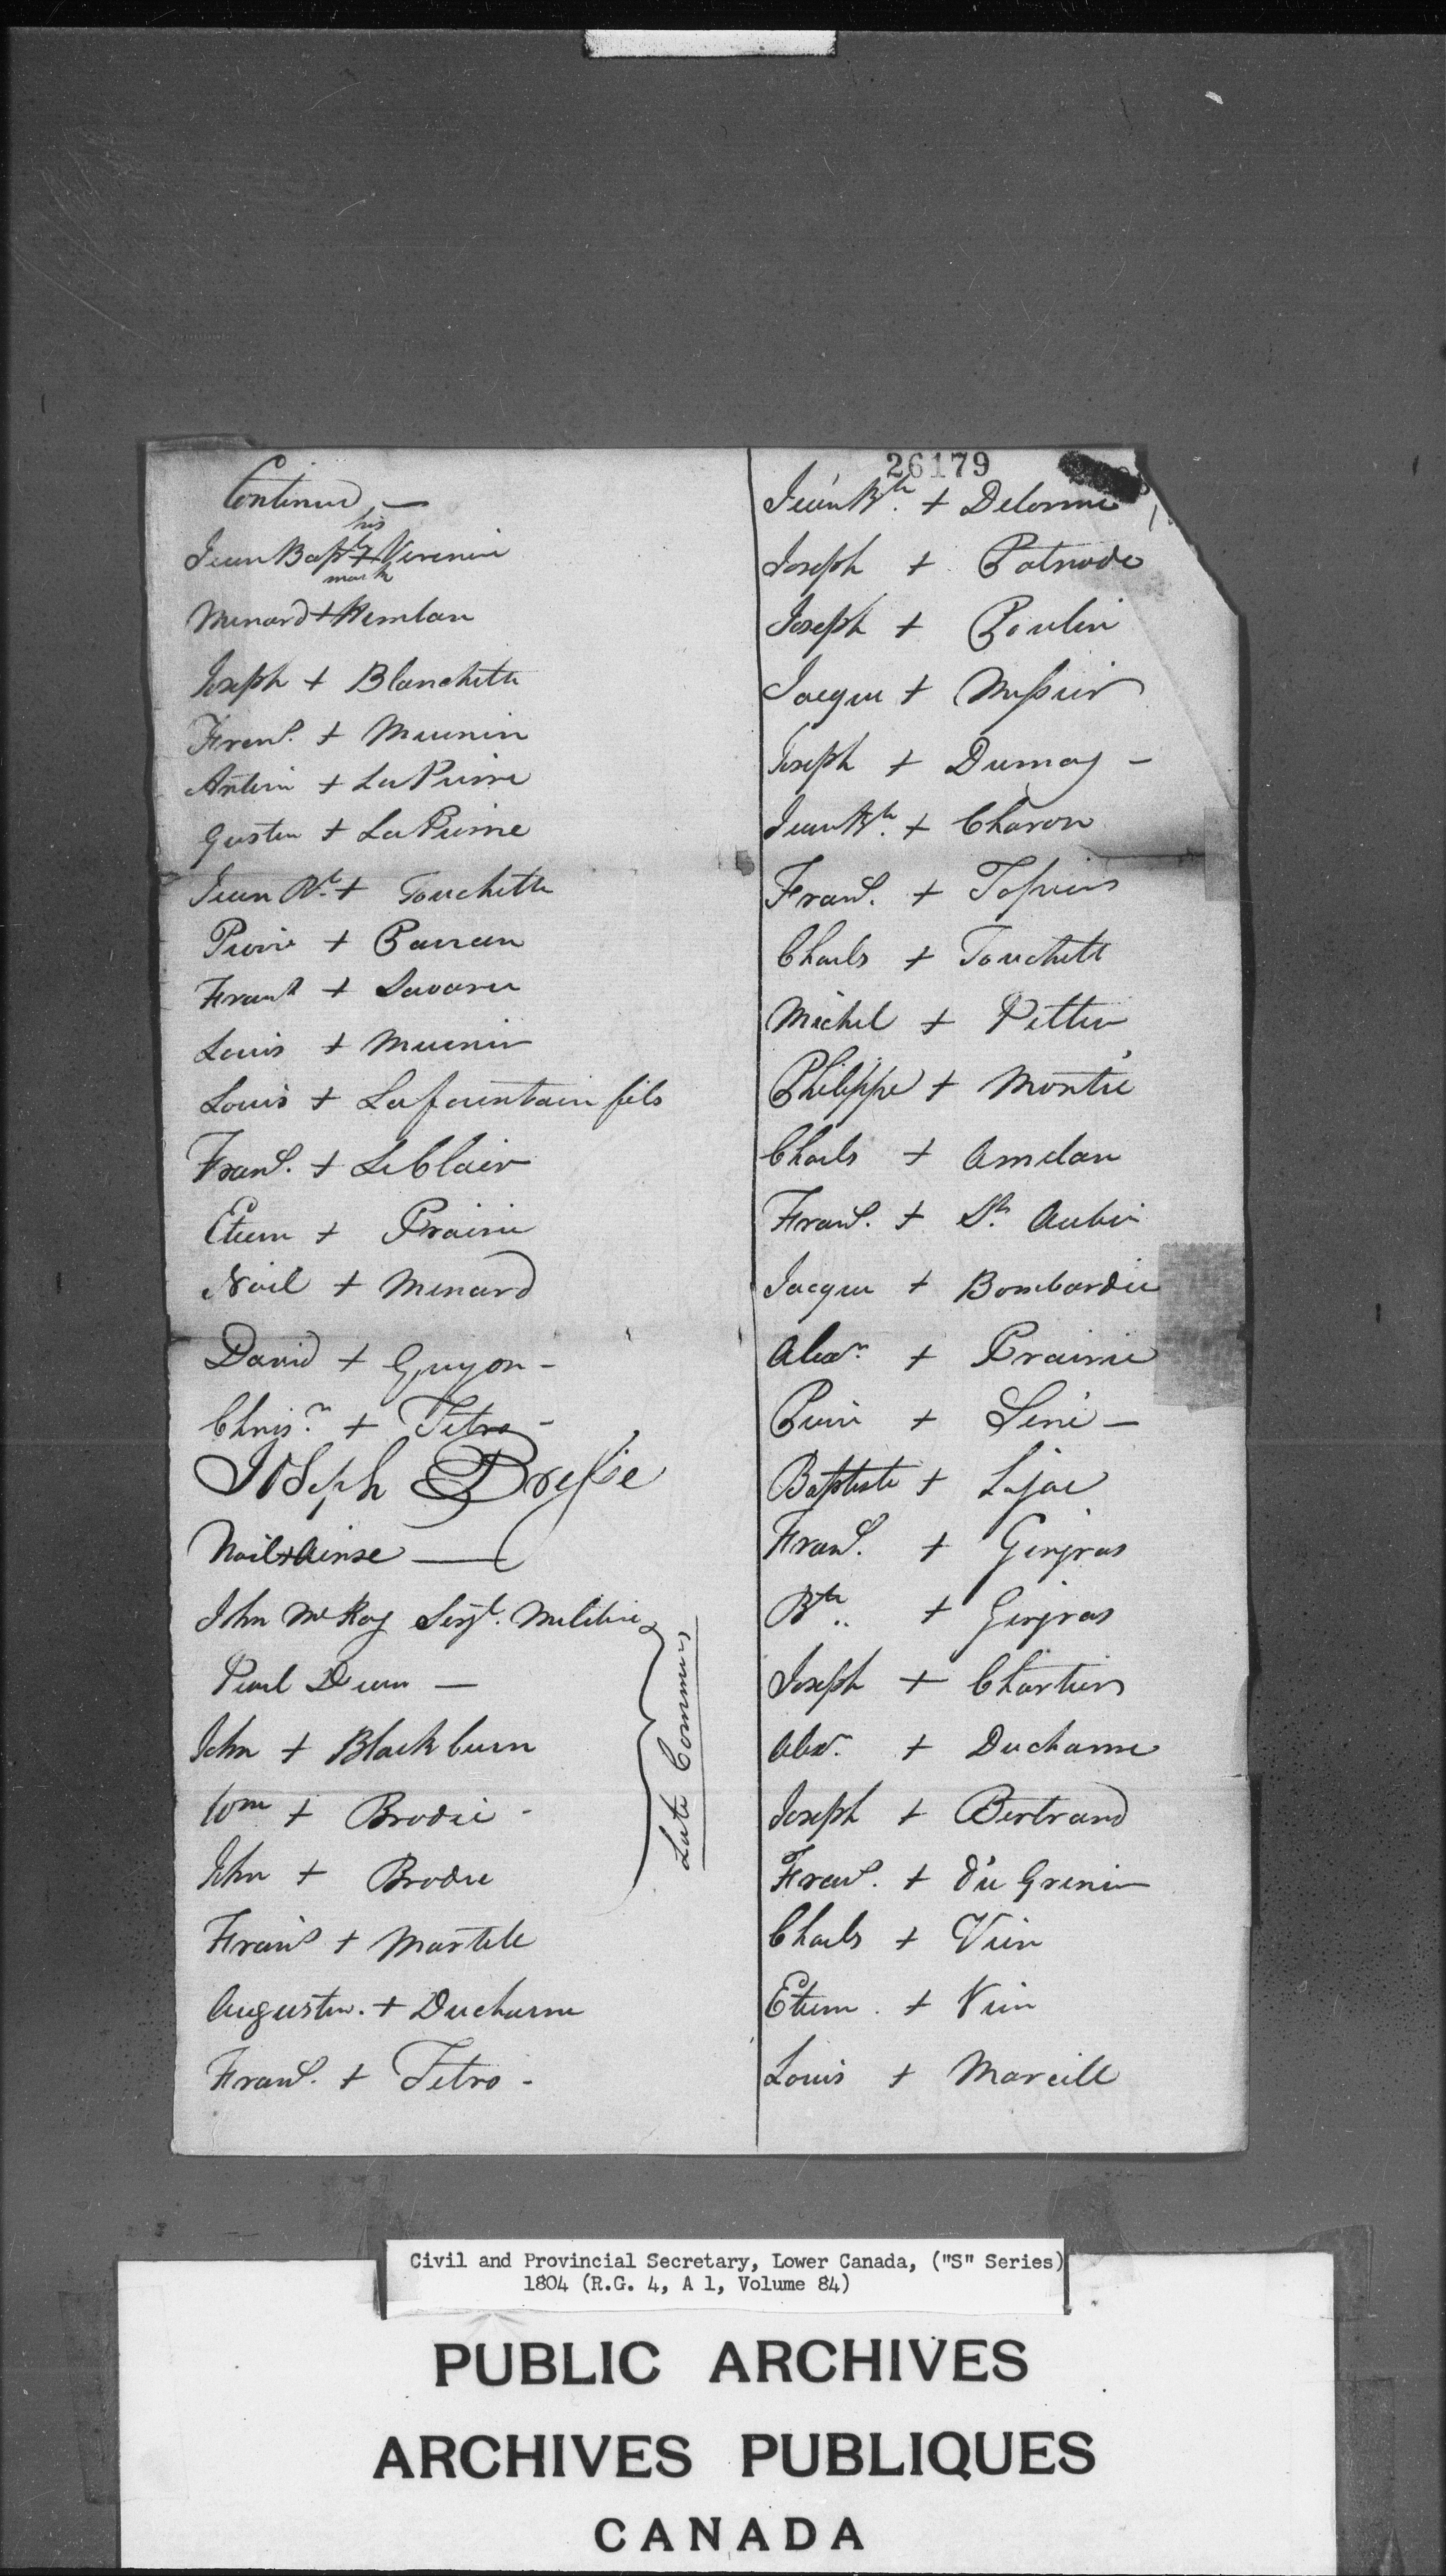 26179
Continued —
Jean Bapt his + mark Veronin
Menard + Hemlan
Joseph + Blanchette
Frans. + Meunin
Antoin + LaPierre
Gusten + LaPierre
Jean Bte + Touchette
Pierre + Barran
Frans + Savarn
Louis + Meunir
Louis + Lafountain fils
Frans. + LeClair
Etuen + Prairie
Noil + Menard
David + Guyon -
Chrisn. + Tetro -
Joseph Bresse
Noil + Ainse —
John McKay Serjt. Militia
Paul Dunn —
John + Blackburn
Wm + Brodie -
John + Brodie
Late Commers
Frans + Martell
Augusten. + Ducharm
Frans. + Tetro -
Jean Bte. + Delorme
Joseph + Patnode
Joseph + Poulin
Jacque + Messier
Joseph + Dumay -
Jean Bte. + Charon
Frans. + Tessier
Charls + Touchett
Michel + Pettin
Philippe + Montie
Charls + Amelan
Frans. + St. Aubin
Jacque + Bombardie
Alexr. + Prairie
Pierre + Sene -
Baptiste + Lajae
Frans. + Gingras
Bte .. + Gingras
Joseph + Chartier
Alexr. + Ducharme
Joseph + Bertrand
Frans. + Du Grenier
Charls + Vien
Etuen. + Vien
Louis + Marcill
Civil and Provincial Secretary, Lower Canada, ("S" Series)
1804 (R.G. 4, A 1, Volume 84)
PUBLIC ARCHIVES
ARCHIVES PUBLIQUES
CANADA